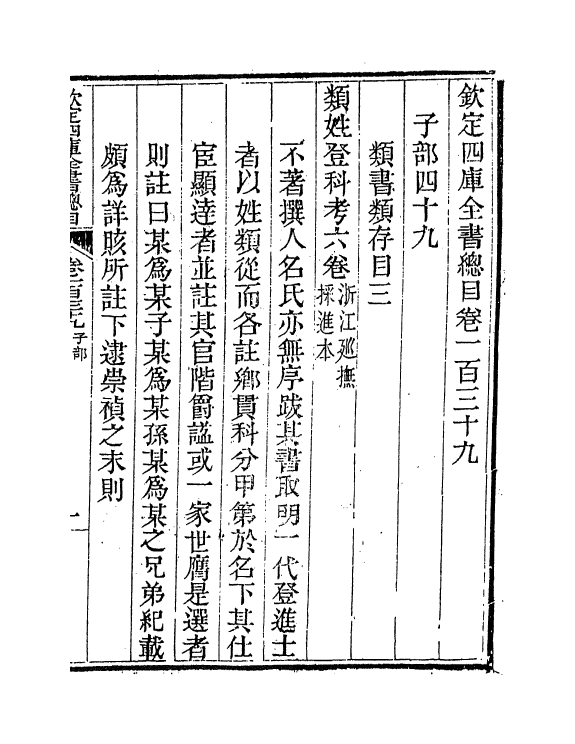 欽定四庫全書總目卷一百三十九
子部四十九
類書類存目三
類姓登科考六卷浙江巡撫採進本
不著撰人名氏亦無序跋其書取明一代登進士
者以姓類從而各註鄉貫科分甲第於名下其仕
宦顯達者並註其官階爵諡或一家世膺是選者
則註曰某為某子某為某孫某為某之兄弟紀載
頗為詳賅所註下逮崇禎之末則
欽定四庫全書總目 卷一百三十九 子部 一